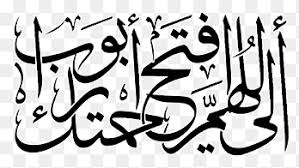 اللهم افتح لي أبواب رحمتك